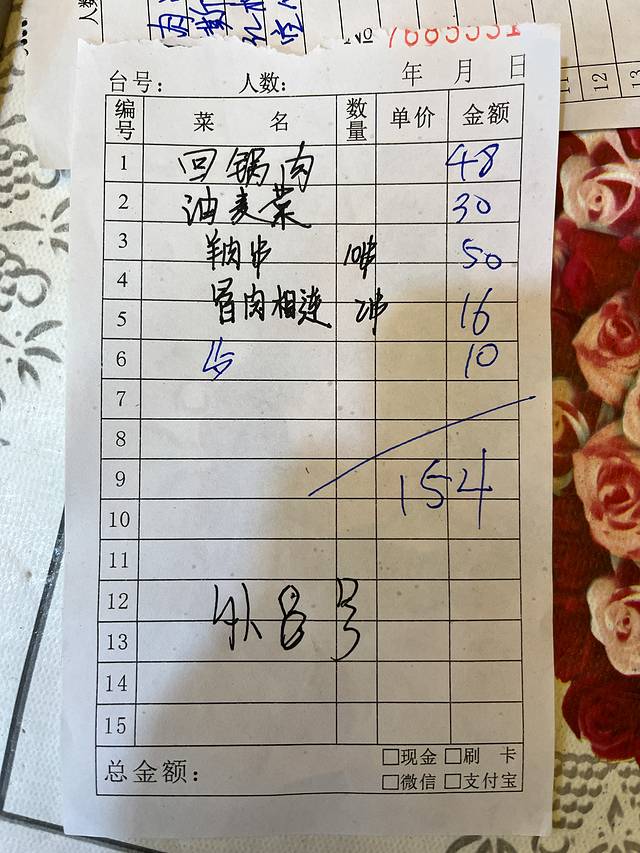 人数
№ 7685551
11
12
13
台号: 人数: 年 月 日
编号 菜 名 数量 单价 金额
1 回锅肉 48
2 油麦菜 30
3 羊肉串 10串 50
4
5 骨肉相连 2串 16
6 10
7
8
9 154
10
11
12 外8号
13
14
15
总金额: □现金 □刷 卡
□微信 □支付宝